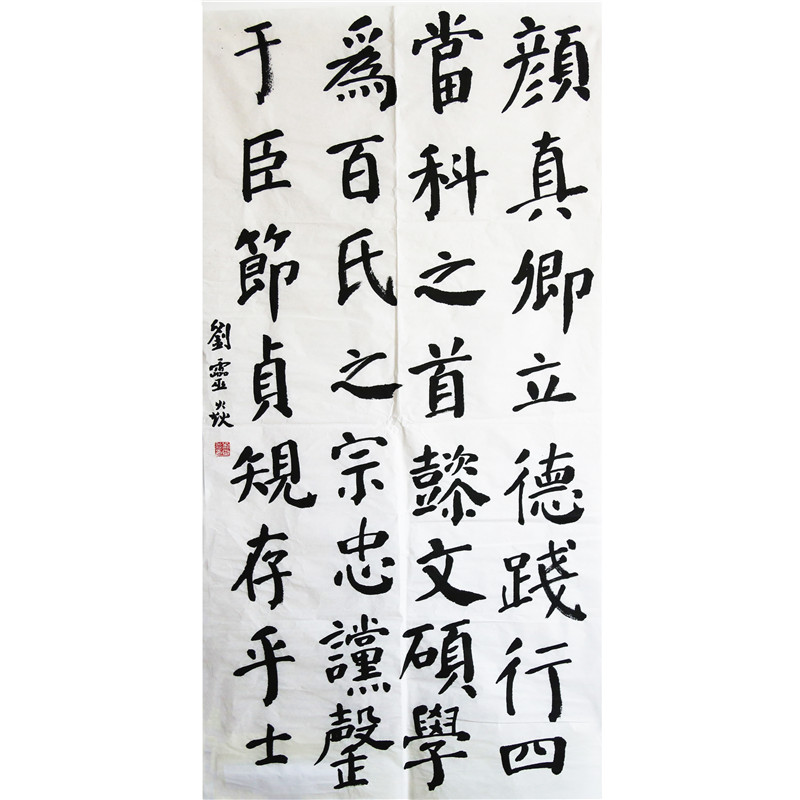 顔真卿立德踐行四
當科之首懿文碩學
爲百氏之宗忠讜罄
于臣節貞規存乎士
劉靈